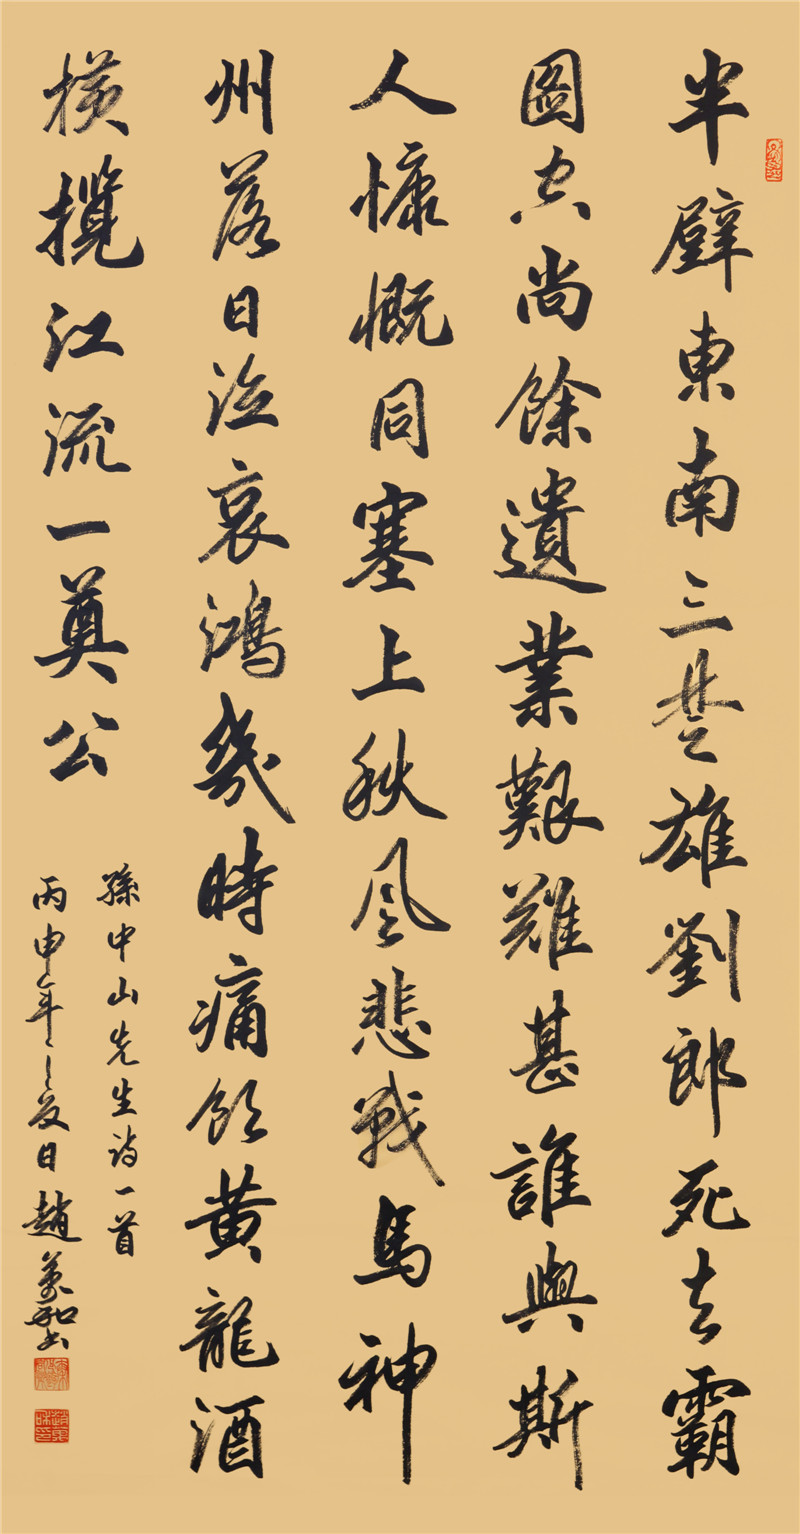 半壁東南三楚雄劉郎死去霸
圖空尚餘遺業艱難甚誰與斯
人慷慨同塞上秋風悲戰馬神
州落日泣哀鴻幾時痛飲黄龍酒
橫攬江流一奠公
孫中山先生詩一首
丙申年之夏日趙萬和书